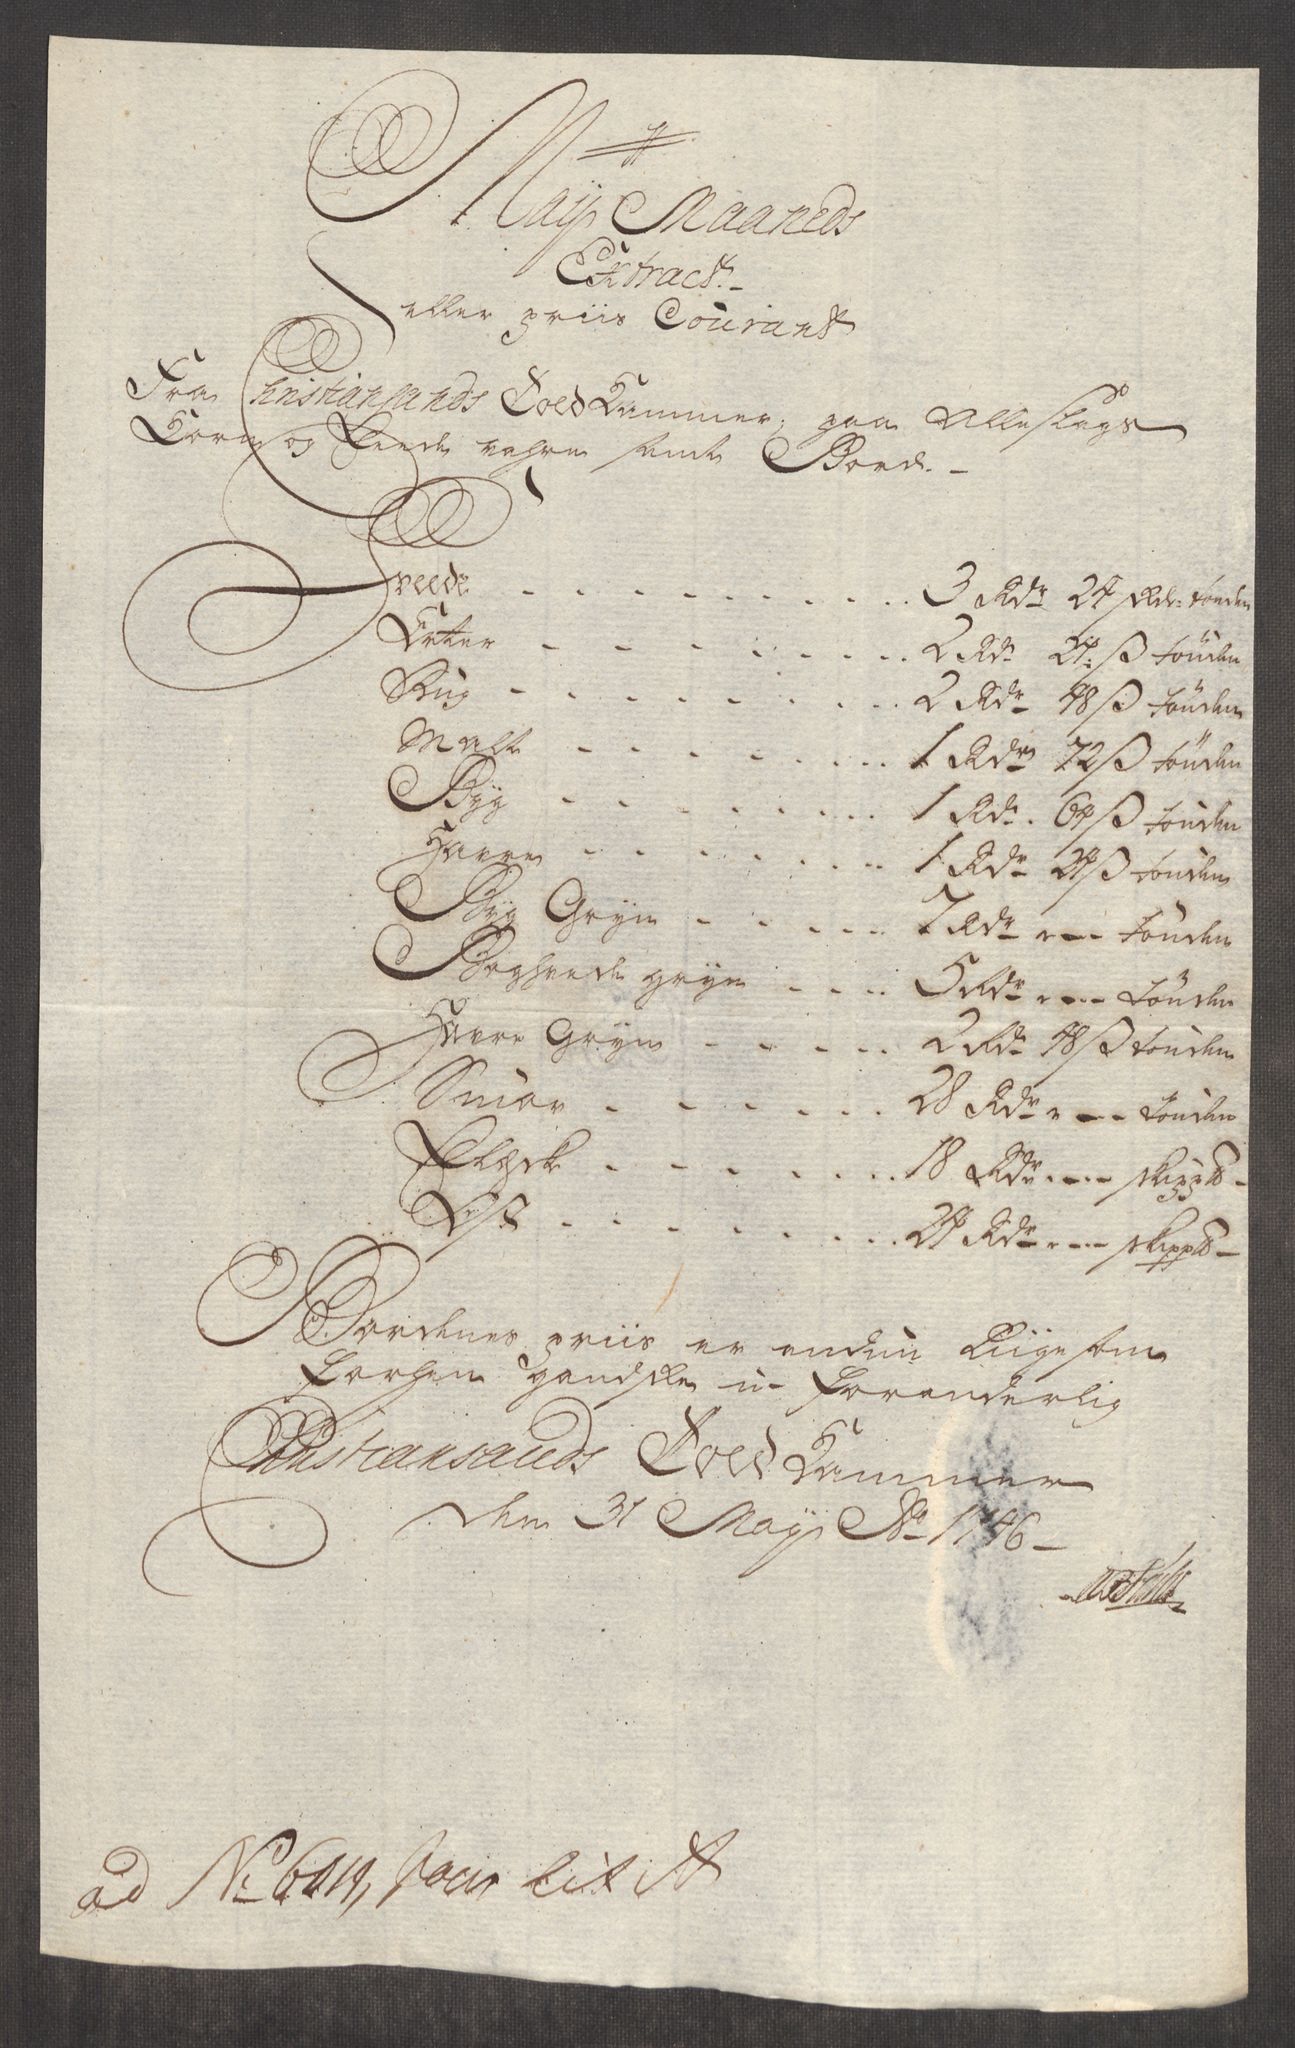 Maÿ Maaneds
Extract
eller priis Courant
Fra Christiansands Told Kammer, paa Alle slags
Korn og Feede vahre samt Bord.
Hveede 3 Rdr 24 skl: tønden
Erter 2 Rdr 24 ß tønden
Rug 2 Rdr 48 ß tønden
Malt 1 Rdr 72 ß tønden
Bÿg 1 Rdr. 64 ß tønden
Havre 1 Rdr 24 ß tønden
Bÿg Grÿn 7 Rdr tønden
Boghveede grÿn 5 Rdr tønden
Havre Grÿn 2 Rdr 48 ß tønden
Smør 28 Rdr tønden
Flesk 18 Rdr skippd
Ost 24 Rdr skippd
Bordenes priis er endnu Liige som
forhen gandske u-foranderlig
Christiansands Told Kammer
den 31 Maÿ Ao 1746
ad No Lit A